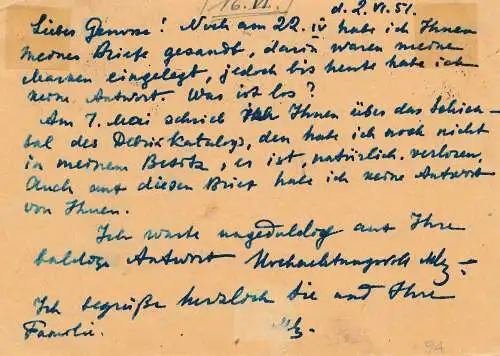 16. VI.
d. 2. VI. 51.
Lieber Genosse! Noch am 22. IV habe ich Ihnen
meines Briefe gesandt, darin waren meine
Marken eingelegt, jedoch bis heute habe ich
keine Antwort. Was ist los?
Am 7. Mai schrieb ich Ihnen über das Schick-
sal des Katalogs, den habe ich noch nicht
in meinem Besitz, es ist, natürlich verloren.
Auch auf diesen Brief habe ich keine Antwort
von Ihnen.
Ich warte ungeduldig auf Ihre
baldige Antwort Hochachtungsvoll
Ich begrüße herzlich Sie und Ihre
Familie.